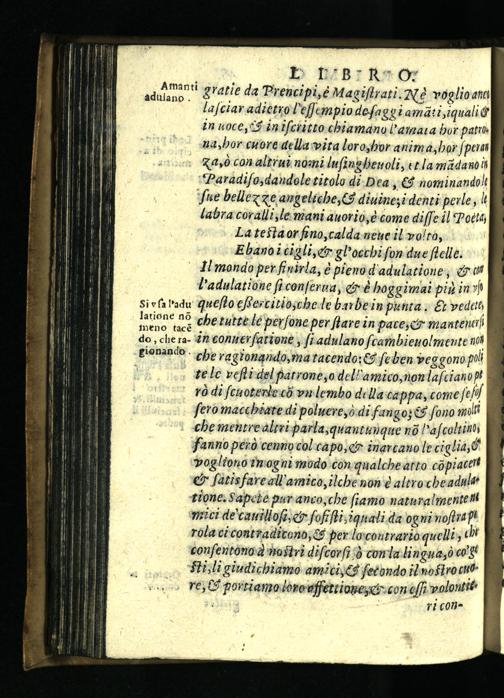 LIBRO.
gratie da Prencipi, è Magistrati. Nè voglio anco
lasciar adietro l'essempio de saggi amāti, iquali &
in uoce, & in iscritto chiamano l'amata hor patro-
na, hor cuore della vita loro, hor anima, hor speran
za, ò con altrui nomi lusingheuoli, et la mādano in
Paradiso, dandole titolo di Dea, & nominando le
sue bellezze angeliche, & diuine; i denti perle, le
labra coralli, le mani auorio, è come disse il Poeta,
La testa or fino, calda neue il volto,
Ebano i cigli, & gl'occhi son due stelle.
Il mondo per finirla, è pieno d'adulatione, & con
l'adulatione si conserua, & è hoggimai più in vso
questo essercitio, che le barbe in punta. Et vedete,
che tutte le persone per stare in pace, & mantenersi
in conuersatione, si adulano scambieuolmente non
che ragionando, ma tacendo: & se ben veggono poli
te le vesti del patrone, o dell'amico, non lasciano pe
rò di scuoterle cō vn lembo della cappa, come se fos
sero macchiate di poluere, ò di fango; & sono molti
che mentre altri parla, quantunque nō l'ascoltino,
fanno però cenno col capo, & inarcano le ciglia, &
vogliono in ogni modo con qualche atto cōpiacere
& satisfare all'amico, ilche non è altro che adula-
tione. Sapete pur anco, che siamo naturalmente ne
mici de' cauillosi, & sofisti, iquali da ogni nostra pa
rola ci contradicono, & per lo contrario quelli, che
consentono à nostri discorsi ò con la lingua, ò co' ge
sti, li giudichiamo amici, & secondo il nostro cuo-
re, & portiamo loro affettione, & con essi volontie-
ri con-
Amanti
aduiano.
Si vsa l'adu
latione nō
meno tacē
do, che ra-
gionando.